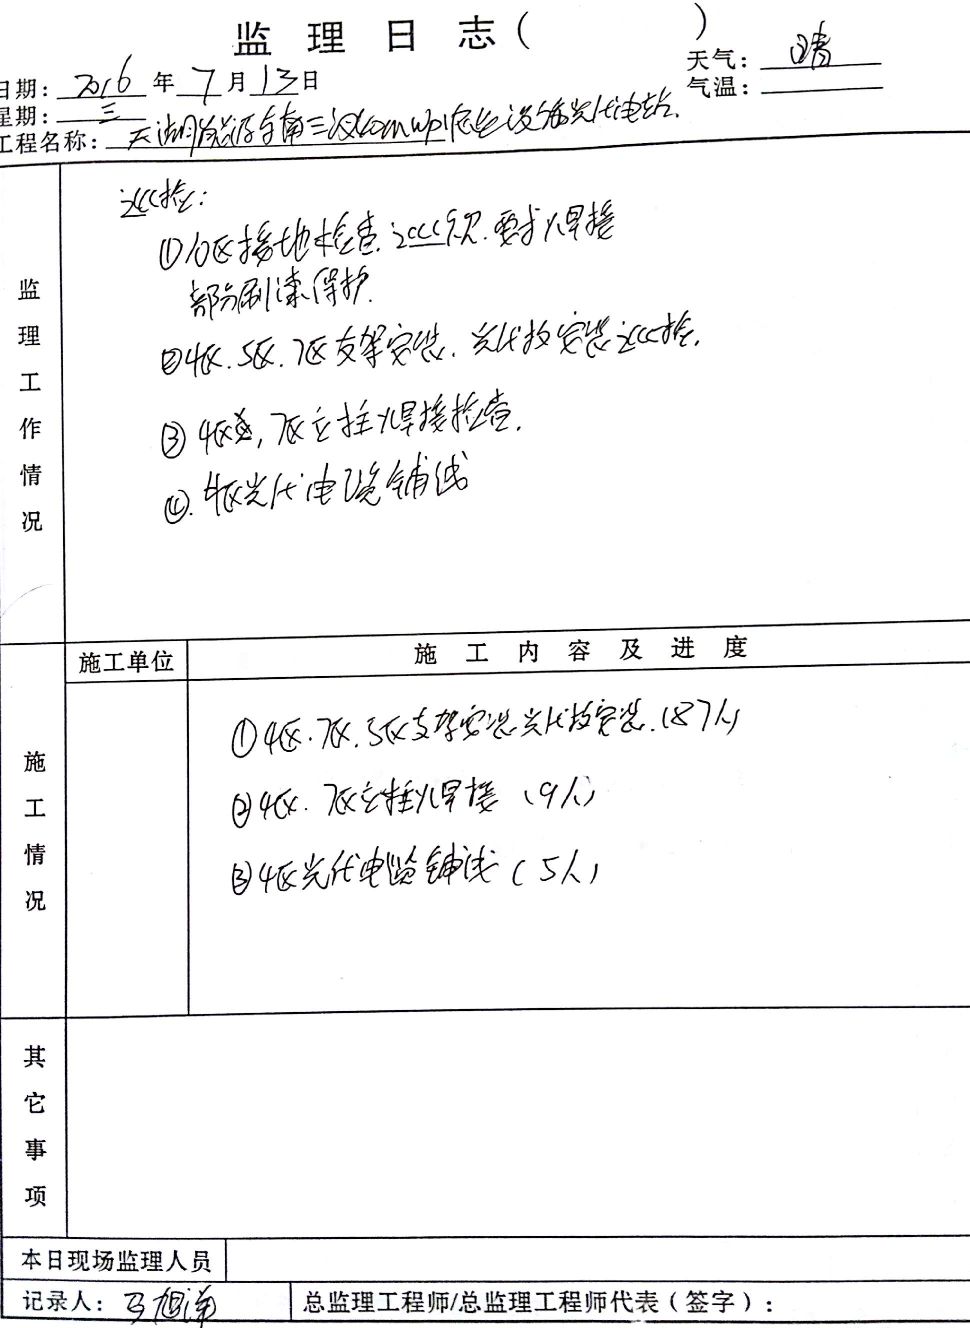 监理日志（ ）
天气：晴
日期：2016年7月13日
气温：
星期：三
工程名称：
监理工作情况
巡检：
①10区接地检查.巡视.要求焊接
部分刷漆保护.
②4区.5区.7区支架安装.光伏板安装巡检.
③4区,7区立柱焊接检查.
④.4区光伏电缆铺线
施工单位 施工内容及进度
施工情况
①4区.7区.5区支架安装光伏板安装.(87人)
②4区.7区立柱焊接(9人)
③4区光伏电缆铺线(5人)
其它事项
本日现场监理人员
记录人： 总监理工程师/总监理工程师代表（签字）：